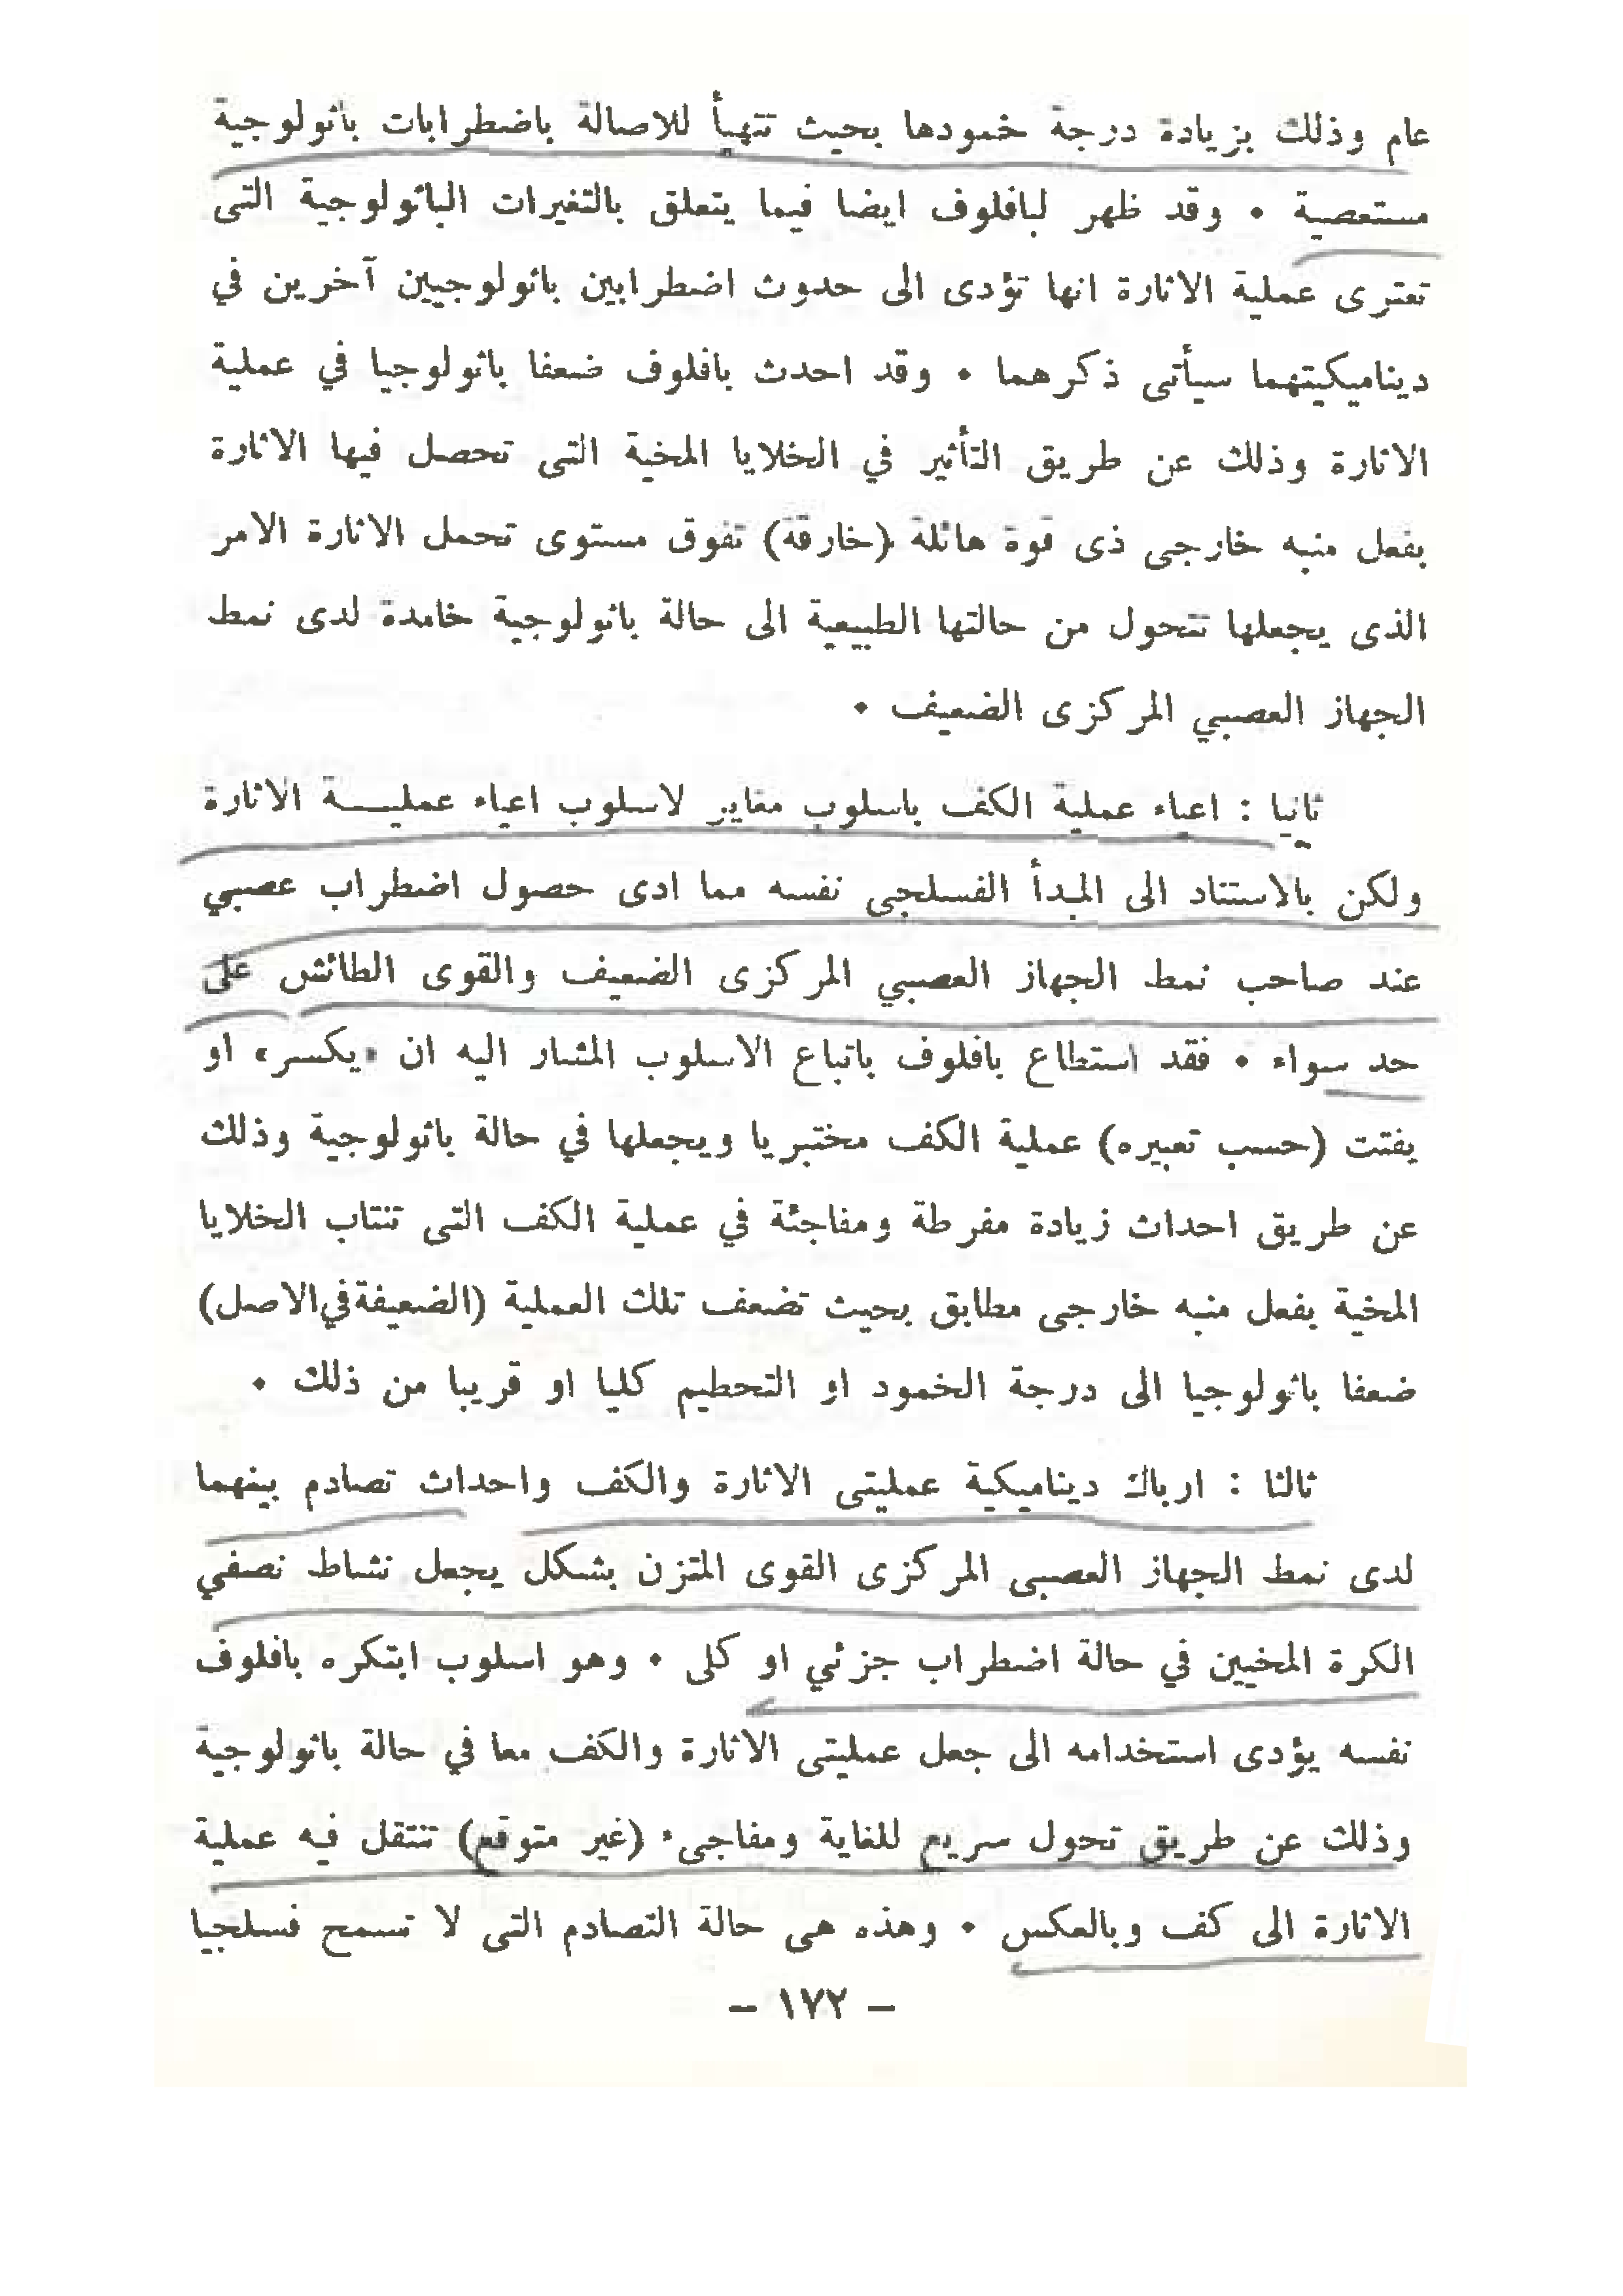 عام وذلك بزيادة درجة خمودها بحيث تتهيأ للاصالة باضطرابات باثولوجية
مستعصية • وقد ظهر لبافلوف ايضا فيما يتعلق بالتغيرات الباثولوجية التى
تعترى عملية الاثارة انها تؤدى الى حدوث اضطرابين باثولوجيين آخرين في
ديناميكيتهما سيأتى ذكرهما • وقد احدث بافلوف ضعفا باثولوجيا في عملية
الاثارة وذلك عن طريق التأثير في الخلايا المخية التى تحصل فيها الاثارة
بفعل منبه خارجى ذى قوة هائلة (خارقة) تفوق مستوى تحمل الاثارة الامر
الذى يجعلها تتحول من حالتها الطبيعية الى حالة باثولوجية خامدة لدى نمط
الجهاز العصبي المركزى الضعيف •
ثانيا : اعياء عملية الكف باسلوب مغاير لاسلوب اعياء عمليـــة الاثارة
ولكن بالاستناد الى المبدأ الفسلجى نفسه مما ادى حصول اضطراب عصبي
عند صاحب نمط الجهاز العصبي المركزى الضعيف والقوى الطائش على
حد سواء • فقد استطاع بافلوف باتباع الاسلوب المشار اليه ان «يكسر» او
يفتت (حسب تعبيره) عملية الكف مختبريا ويجعلها في حالة باثولوجية وذلك
عن طريق احداث زيادة مفرطة ومفاجئة في عملية الكف التى تنتاب الخلايا
المخية بفعل منبه خارجى مطابق بحيث تضعف تلك العملية (الضعيفة في الاصل)
ضعفا باثولوجيا الى درجة الخمود او التحطيم كليا او قريبا من ذلك •
ثالثا : ارباك ديناميكية عمليتى الاثارة والكف واحداث تصادم بينهما
لدى نمط الجهاز العصبى المركزى القوى المتزن بشكل يجعل نشاط نصفي
الكرة المخيين في حالة اضطراب جزئي او كلى • وهو اسلوب ابتكره بافلوف
نفسه يؤدى استخدامه الى جعل عمليتى الاثارة والكف معا في حالة باثولوجية
وذلك عن طريق تحول سريع للغاية ومفاجىء (غير متوقع) تنتقل فيه عملية
الاثارة الى كف وبالعكس • وهذه هى حالة التصادم التى لا تسمح فسلجيا
– ١٧٢ –